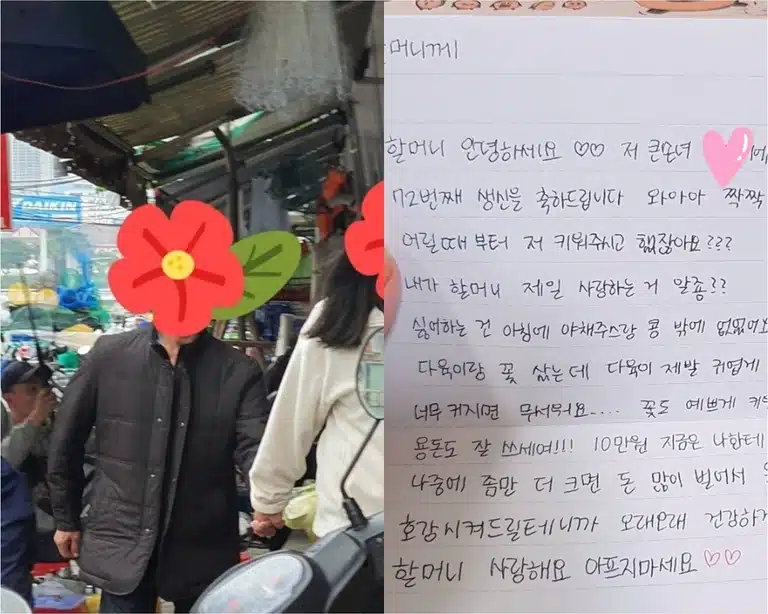 DAIKIN
할머니께
할머니 안녕하세요 ♡♡ 저 큰손녀
72번째 생신을 축하드립니다 와아아 짝짝
어릴때부터 저 키워주시고 했잖아요???
내가 할머니 제일 사랑하는 거 알죵??
싫어하는 건 아침에 야채주스랑 콩 밖에 없었어요
다육이랑 꽃 샀는데 다육이 제발 귀엽게
너무 커지면 무서워요.... 꽃도 예쁘게
용돈도 잘 쓰세여!!! 10만원 지금은 나한테
나중에 좀만 더 크면 돈 많이 벌어서
호강시켜드릴테니까 오래오래 건강하게
할머니 사랑해요 아프지마세요 ♡♡